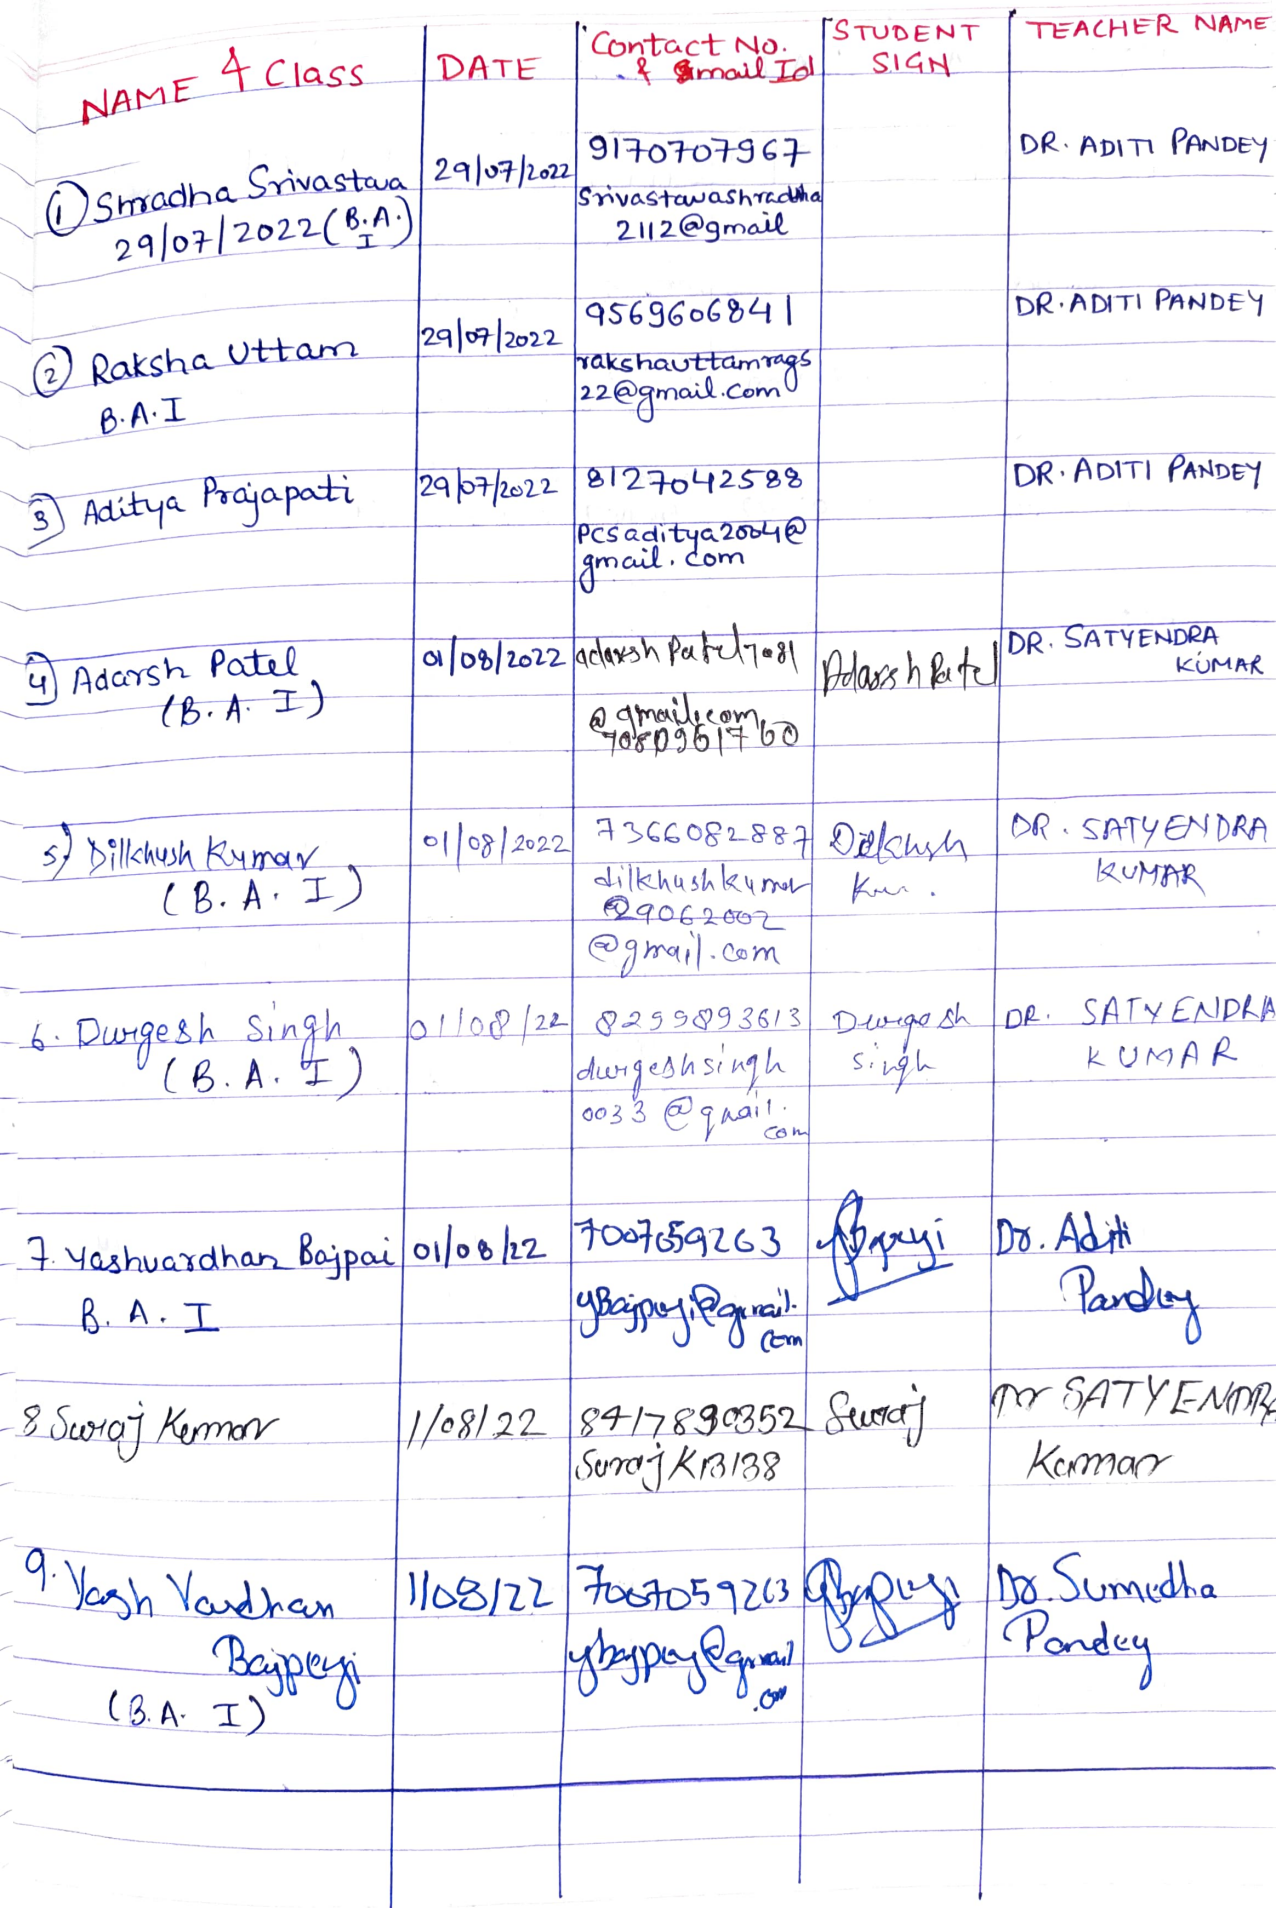 NAME & Class
DATE
Contact No.
& Gmail Id
STUDENT
SIGN
TEACHER NAME
① Shradha Srivastava
29/07/2022 (B.A.
I)
29/07/2022
9170707967
Srivastavashradha
2112@gmail
DR. ADITI PANDEY
② Raksha Uttam
B.A.I
29/07/2022
9569606841
rakshauttamrags
22@gmail.com
DR. ADITI PANDEY
3) Aditya Prajapati
29/07/2022
8127042588
Pcsaditya2004@
gmail.com
DR. ADITI PANDEY
4) Adarsh Patel
(B. A. I)
01/08/2022
adarsh Patel7081
@gmail.com
7080961760
Adarsh Patel
DR. SATYENDRA
KUMAR
5) Dilkhush Kumar
(B. A. I)
01/08/2022
7366082887
dilkhushkumar
29062002
@gmail.com
Dilkhush
Kur.
DR. SATYENDRA
KUMAR
6. Durgesh Singh
(B. A. I)
01/08/22
8299893613
durgeshsingh
0033@gmail.
com
Durgesh
Singh
DR. SATYENDRA
KUMAR
7. Yashvardhan Bajpai
B. A. I
01/08/22
7007059263
yBajpeyi@gmail.
com
YBajpeyi
Dr. Aditi
Pandey
8 Suraj Kumar
1/08/22
8417890352
SurajKB138
Suraj
Dr SATYENDRA
Kumar
9. Yash Vardhan
Bajpeyi
(B.A. I)
1/08/22
7007059263
ybajpey@gmail
.com
Ybajpeyi
Dr. Sumedha
Pandey